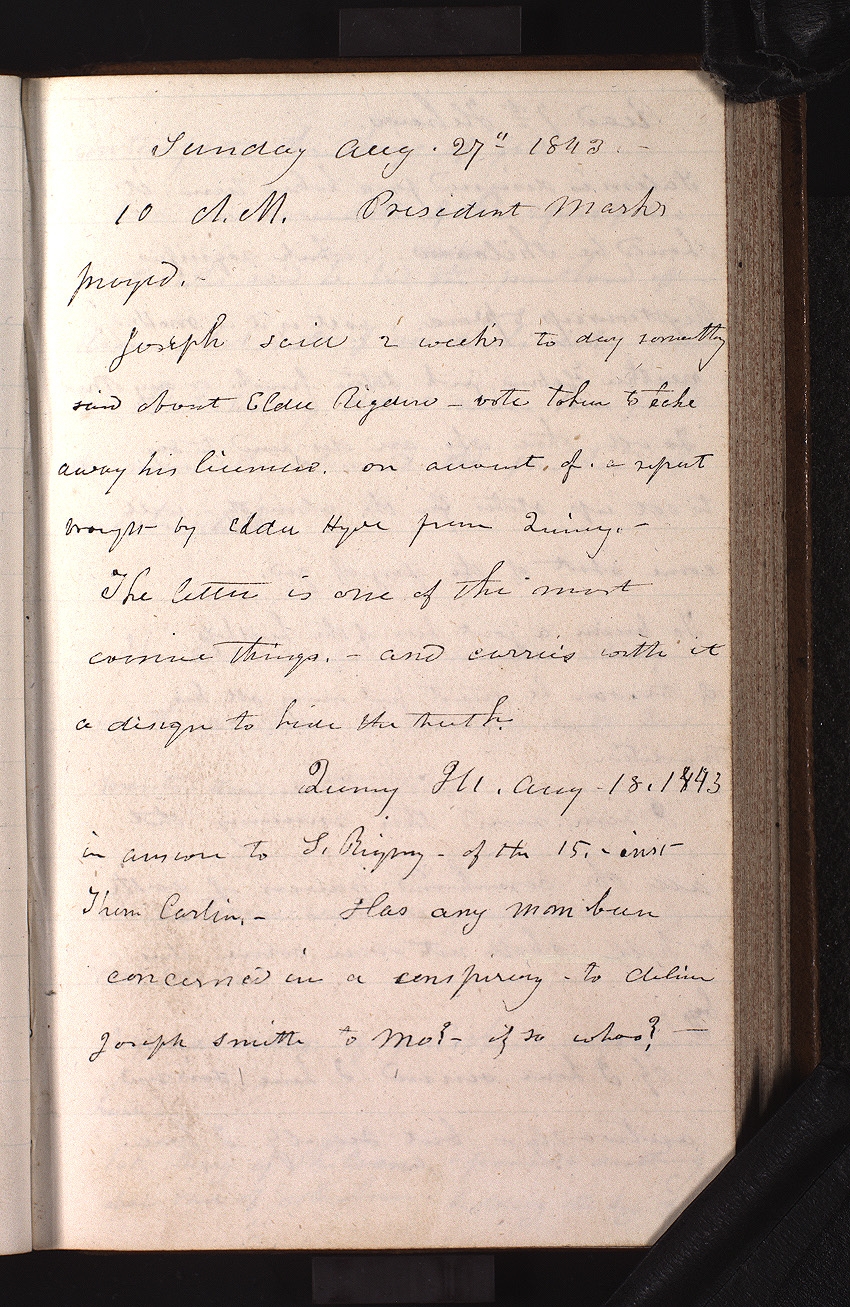 Sunday Aug. 27" 1843.-
10 A.M. President Marks
prayed.-
Joseph said 2 weeks to day someth[in]g
said about Elder Rigdon - vote taken to take
away his license. on account of a report
brought by Elder Hyde from Quincy.-
The letter is one of the most
evasive things. - and carries with it
a design to hide the truth.
Quincy Ill. Aug - 18. 1843
in answer to S. Rigdon - of the 15.- inst
Thom Carlin.- Has any man been
concerned in a conspiracy - to deliver
Joseph Smith to Mo?- if so who?-